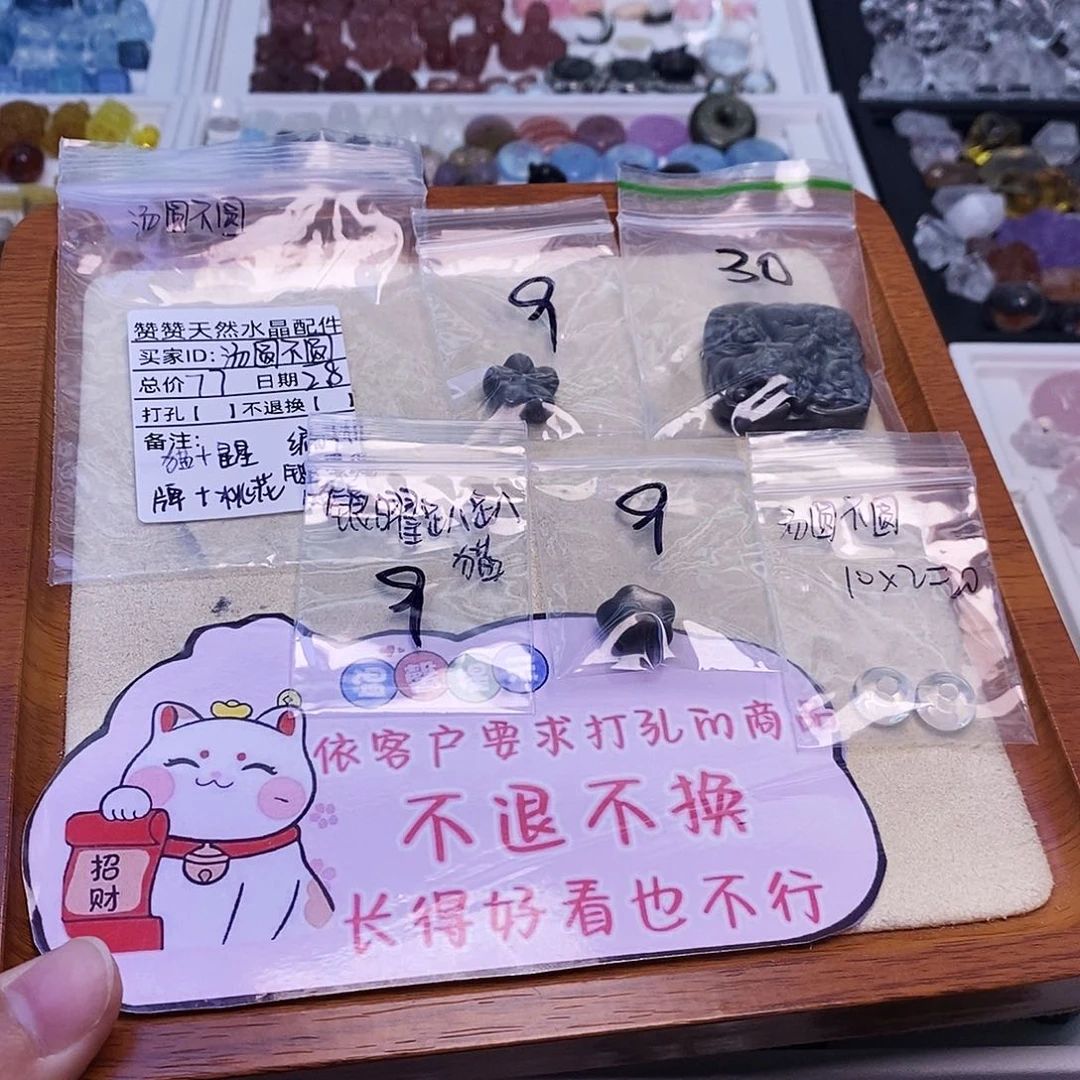 汤圆不圆
9
30
赞赞天然水晶配件
买家ID:汤圆不圆
总价77 日期28
打孔【 】不退换【 】
备注:
猫+星
牌+桃花
银曜趴趴
猫
9
9
汤圆不圆
10×2=20
温馨提示
依客户要求打孔的商品
不退不换
长得好看也不行
招
财